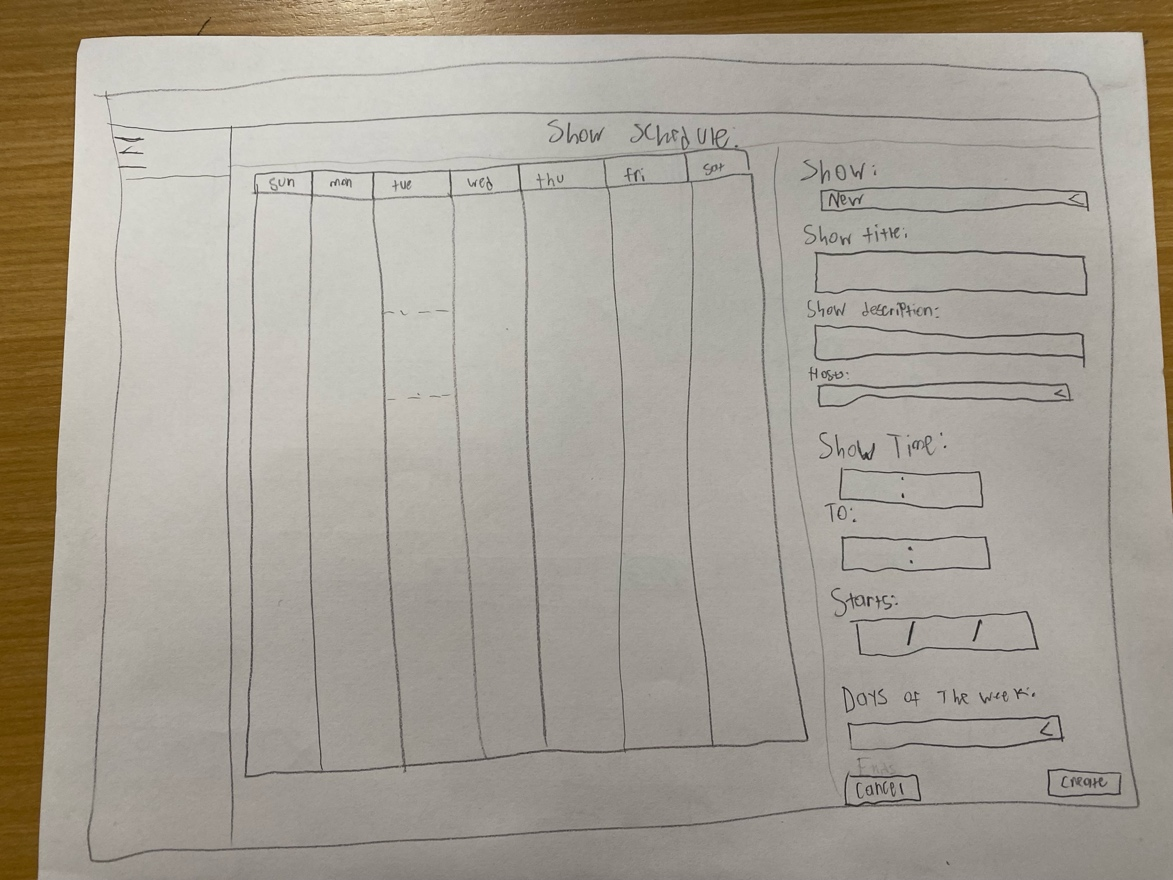 Show Schedule:
sun mon tue wed thu fri sat
Show:
New <
Show title:
Show description:
Host:
<
Show Time:
:
TO:
:
Starts:
/ /
Days of The week:
<
Ends
Cancel
Create